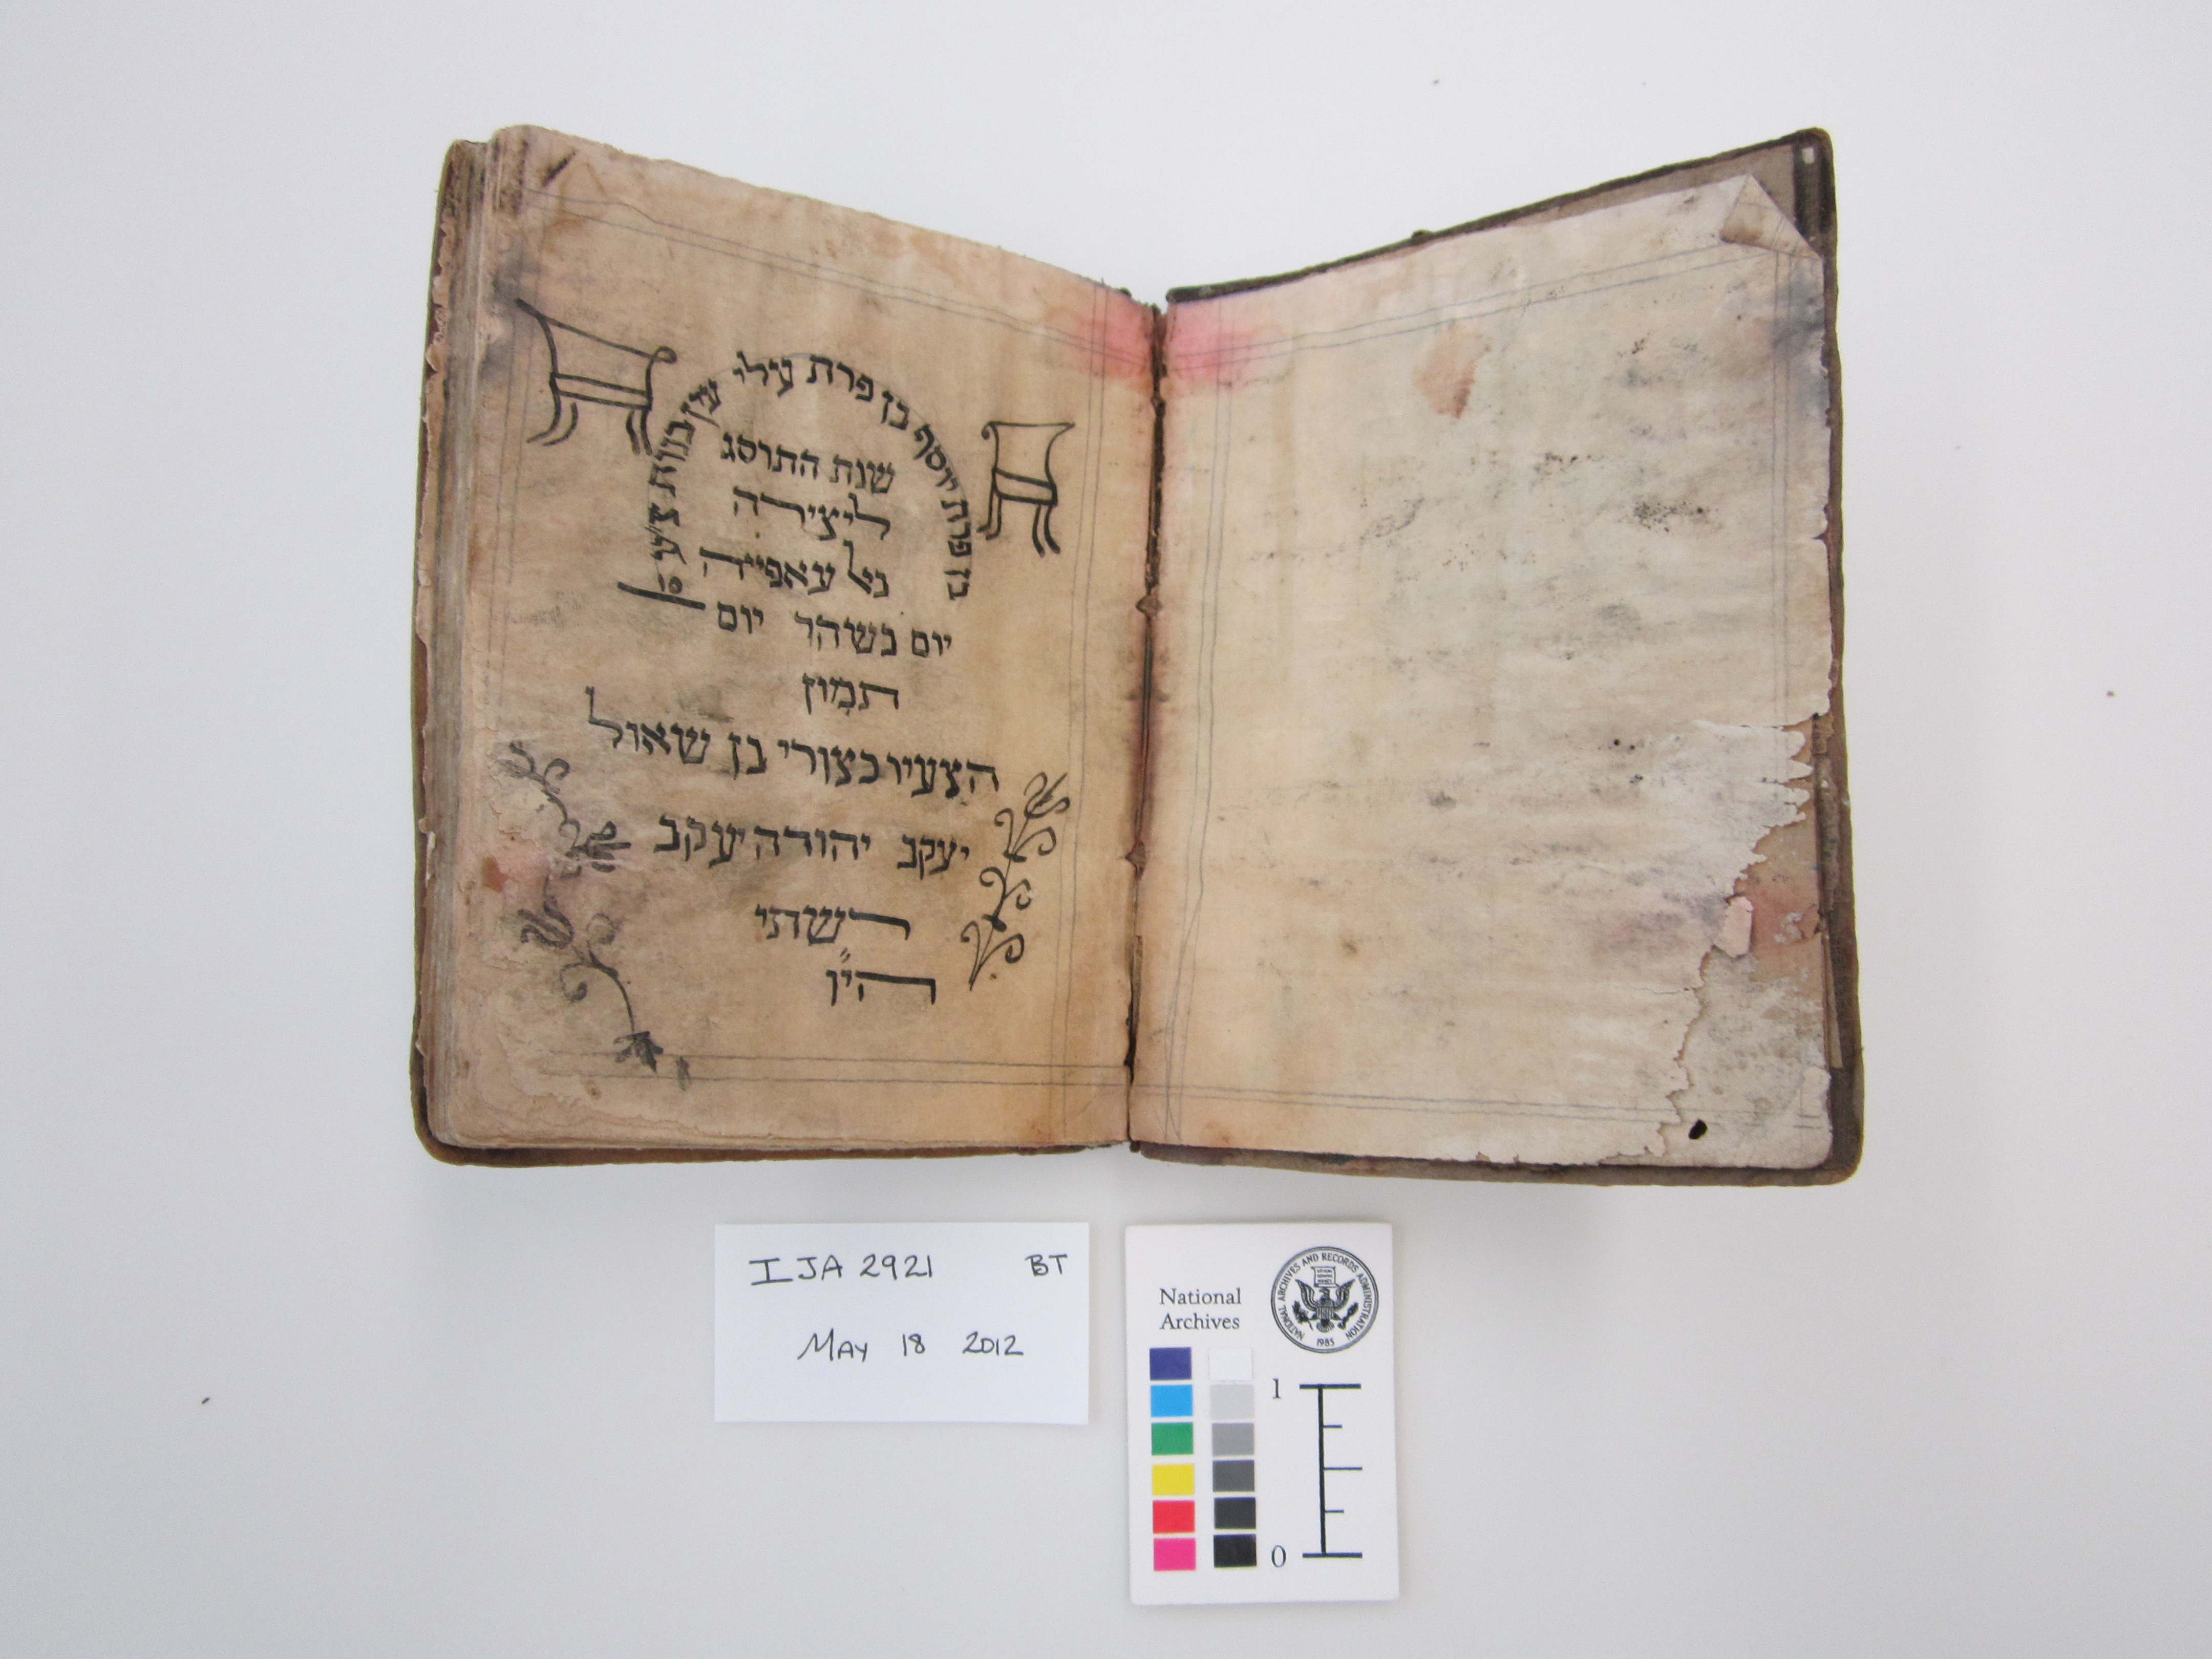 בן פרת יוסף בן פרת עילי עין בנות צעי
שנת התרסג
ליצירה
באל עאפייה
יום בשהר יום
תמוז
הצעיר בצורי בן שאול
יעקב יהודה יעקב
רשתי
הי״ו
IJA 2921 BT
MAY 18 2012
National
Archives
NATIONAL ARCHIVES AND RECORDS ADMINISTRATION
1985
1
0